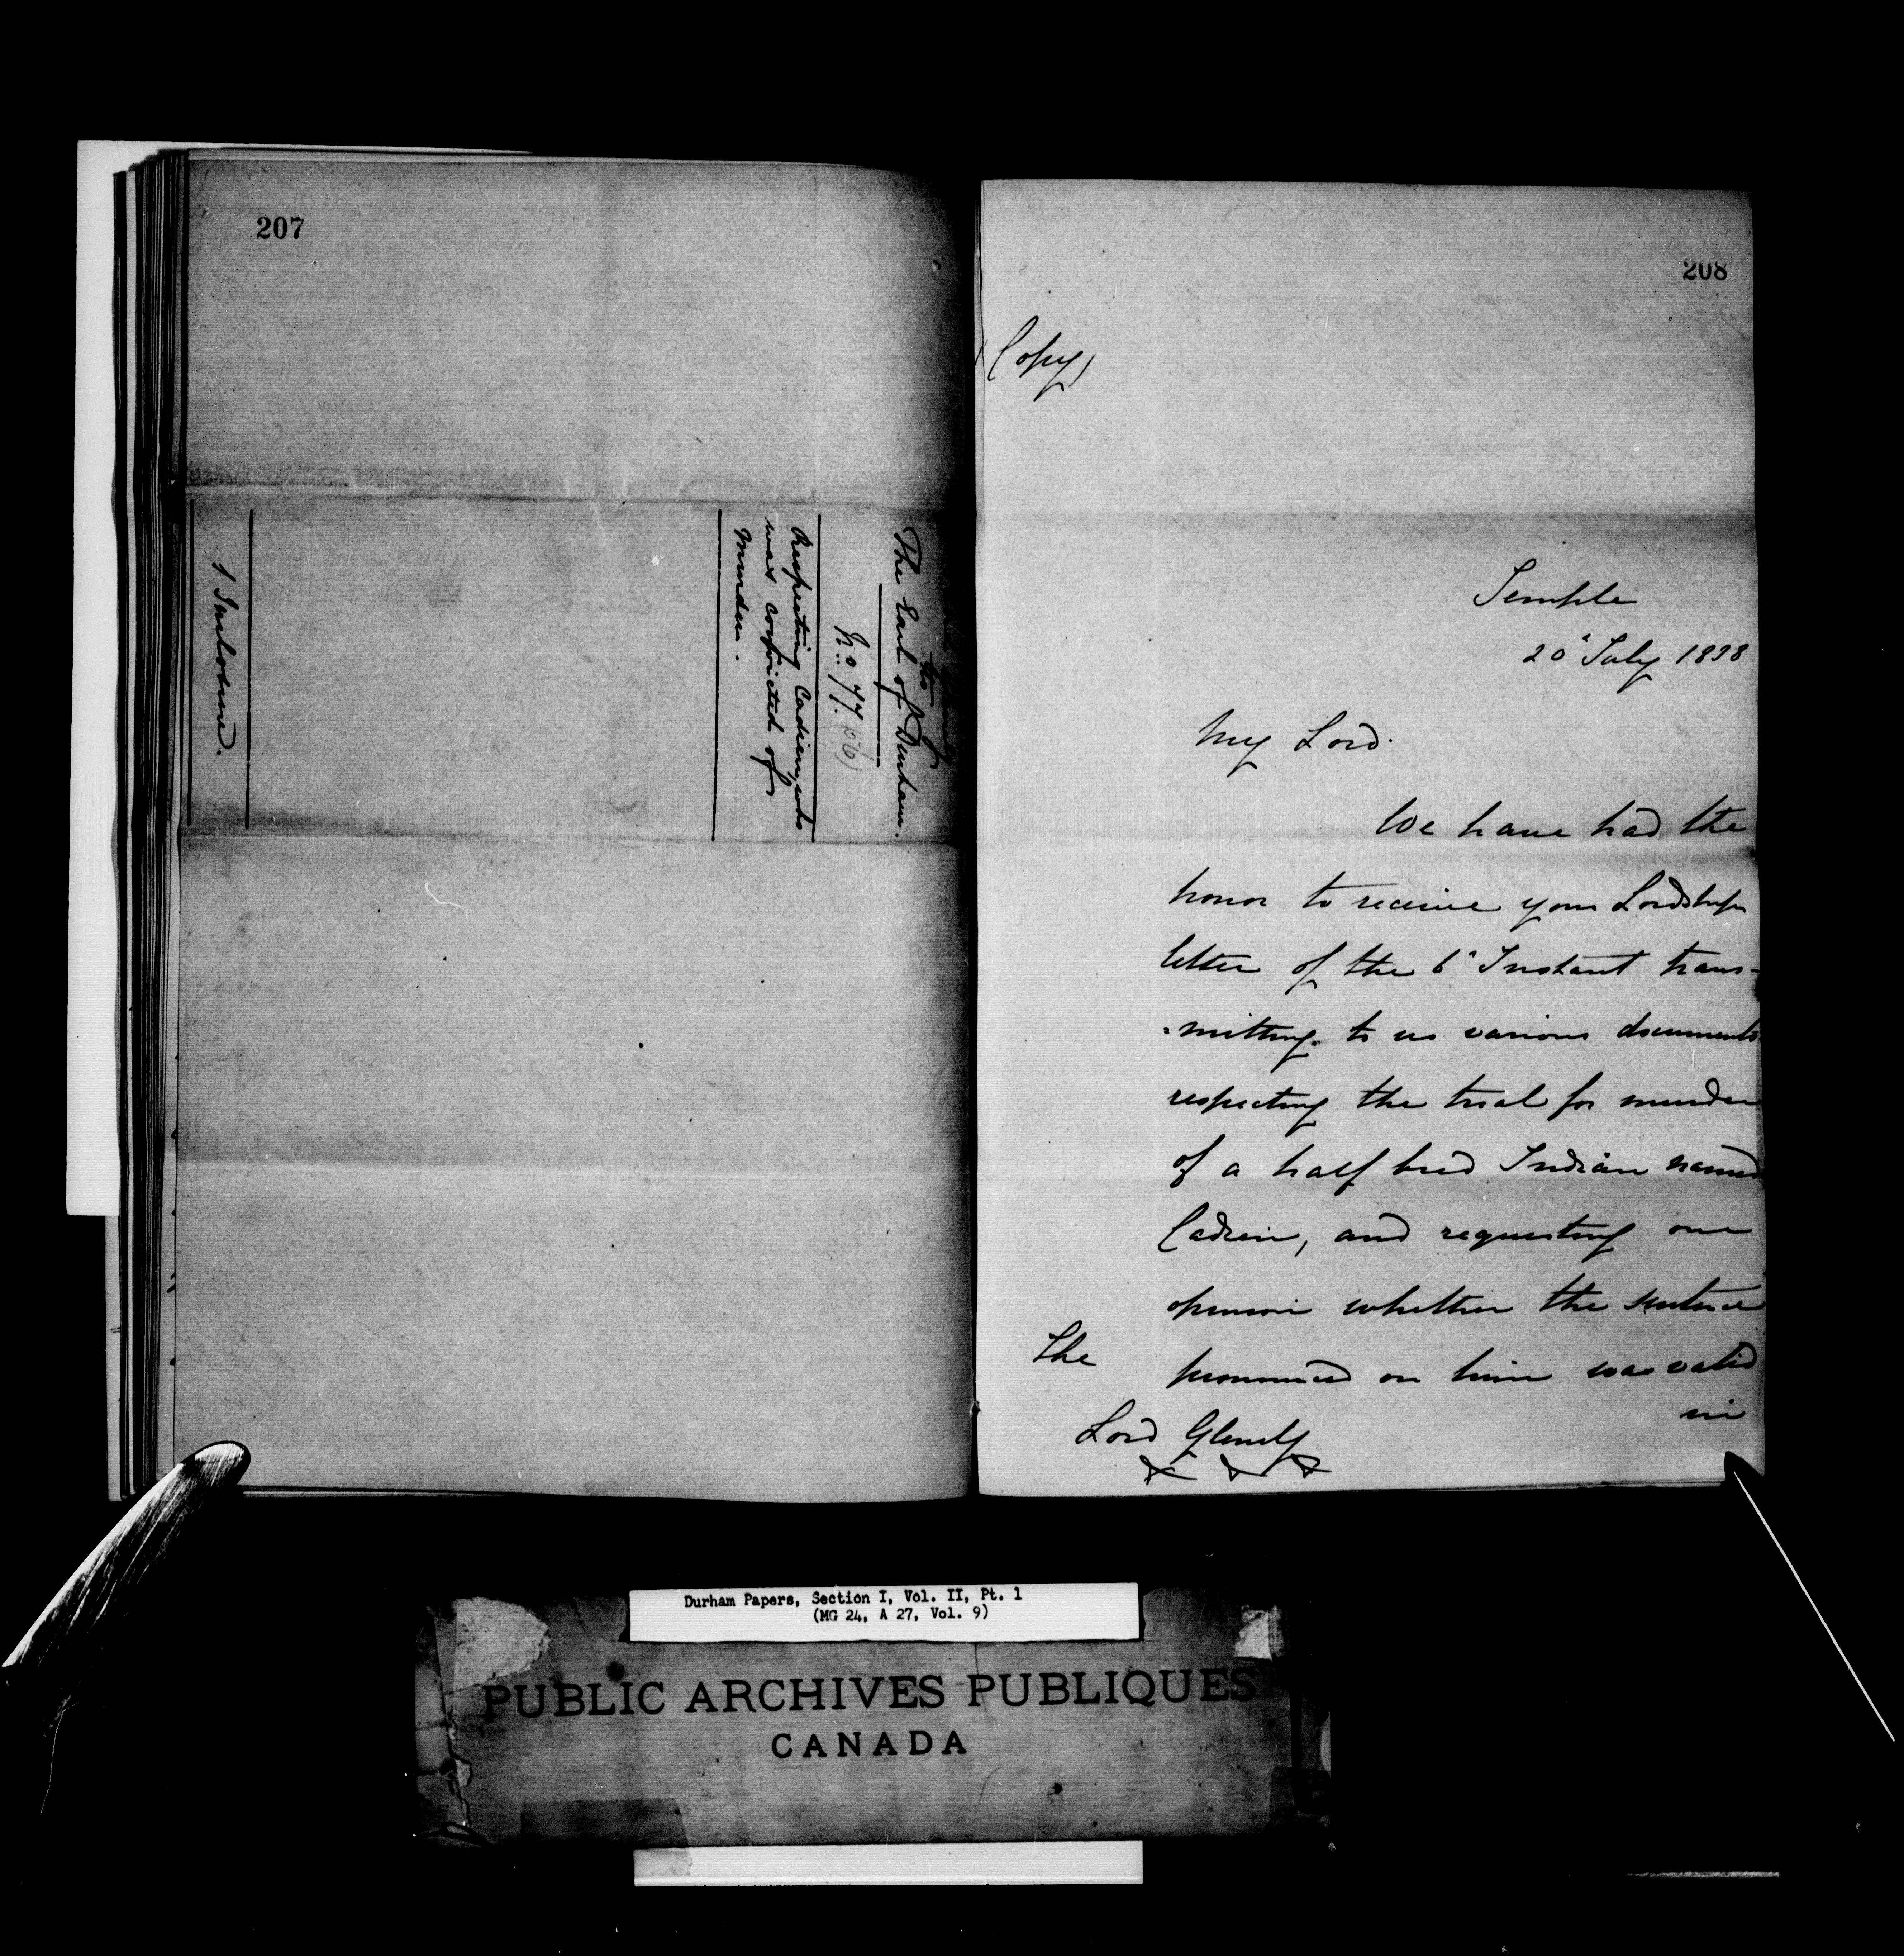 207
to
The Earl of Durham.
No. 77.
Respecting Cadien, who
was convicted of
Murder.
1 Inclosure.
208
(Copy)
Temple
20 July 1838
My Lord.
We have had the
honor to receive your Lordships
letter of the 6 Instant trans-
=mitting to us various documents
respecting the trial for murder
of a half bred Indian named
Cadien, and requesting our
opinion whether the sentence
pronounced on him was valid
in
The
Lord Glenelg
Durham Papers, Section I, Vol. II, Pt. 1
(MG 24, A 27, Vol. 9)
PUBLIC ARCHIVES PUBLIQUES
CANADA